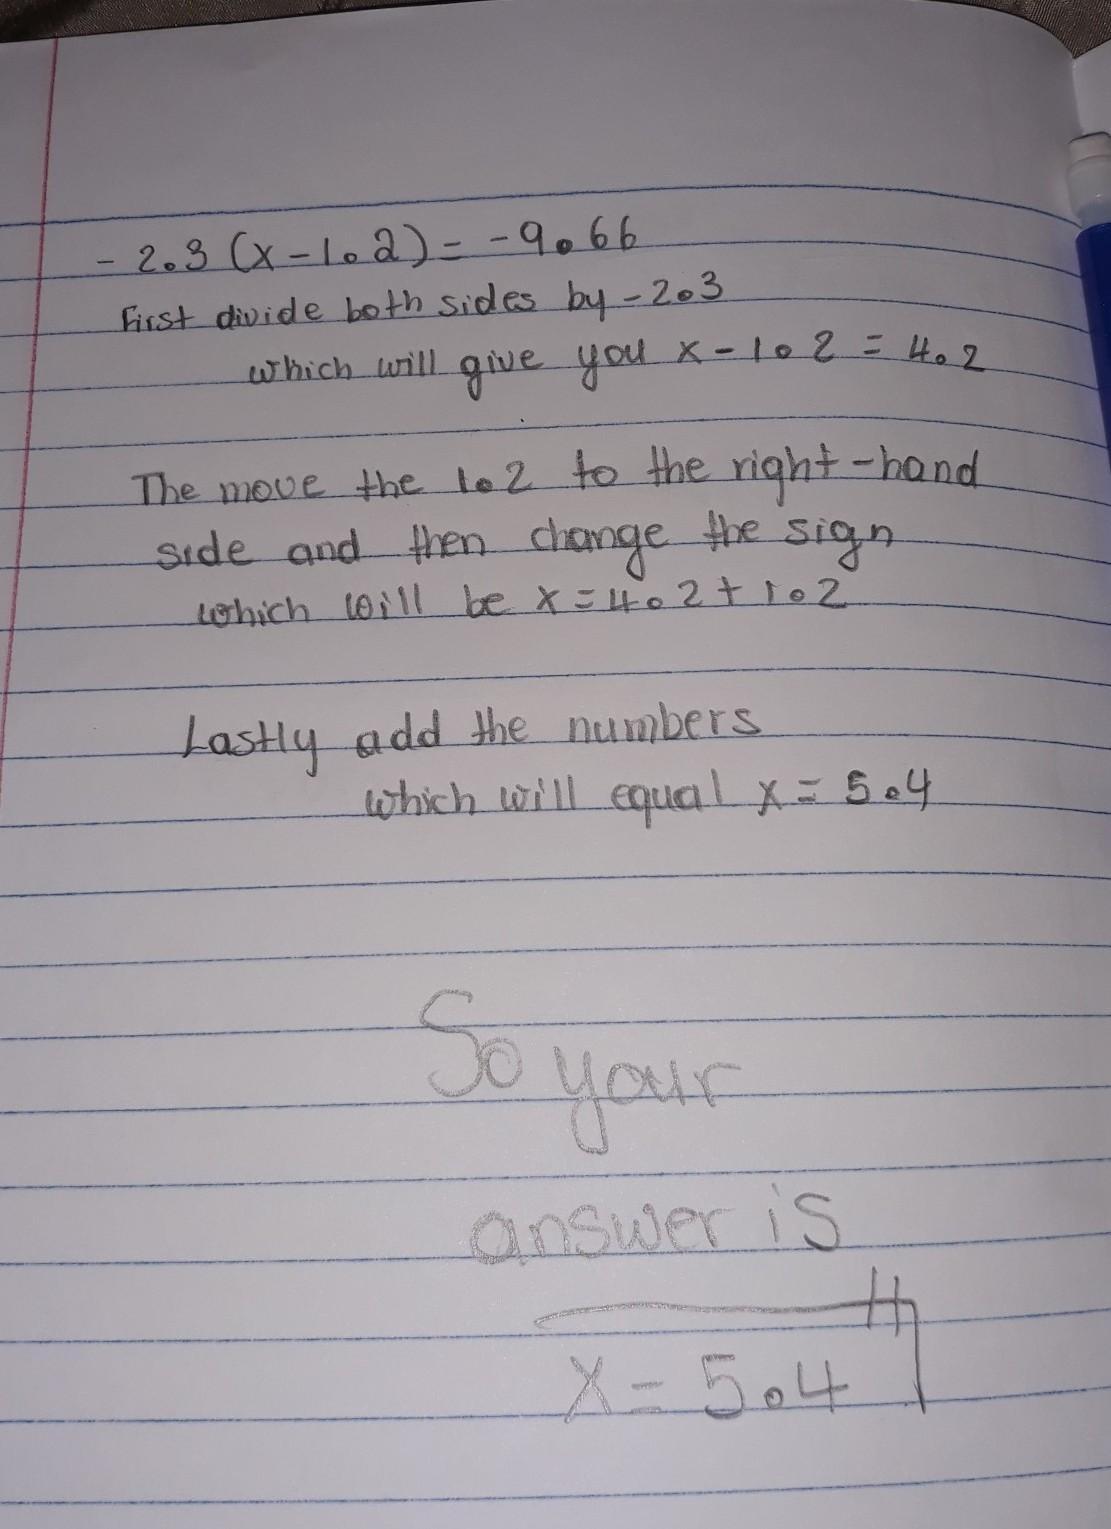 - 2.3 (x-1.2) = -9.66
First divide both sides by -2.3
which will give you x-1.2 = 4.2
The move the 1.2 to the right-hand
side and then change the sign
which will be x=4.2+1.2
Lastly add the numbers
which will equal x = 5.4
So your
answer is
x = 5.4